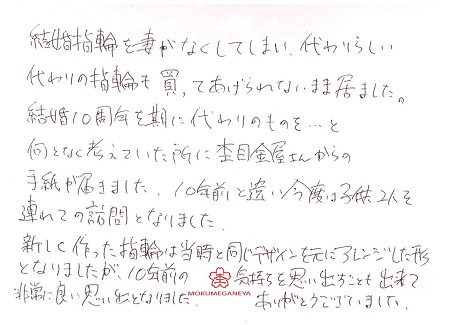 結婚指輪を妻がなくしてしまい、代わりらしい
代わりの指輪も買ってあげられないまま居ました。
結婚10周年を期に代わりのものを…と
何となく考えていた所に杢目金屋さんからの
手紙が届きました。10年前と違い今度は子供2人を
連れての訪問となりました。
新しく作った指輪は当時と同じデザインを元にアレンジした形
となりましたが、10年前の気持ちを思い出すことも出来て
非常に良い思い出となりました。ありがとうございました。
MOKUMEGANEYA